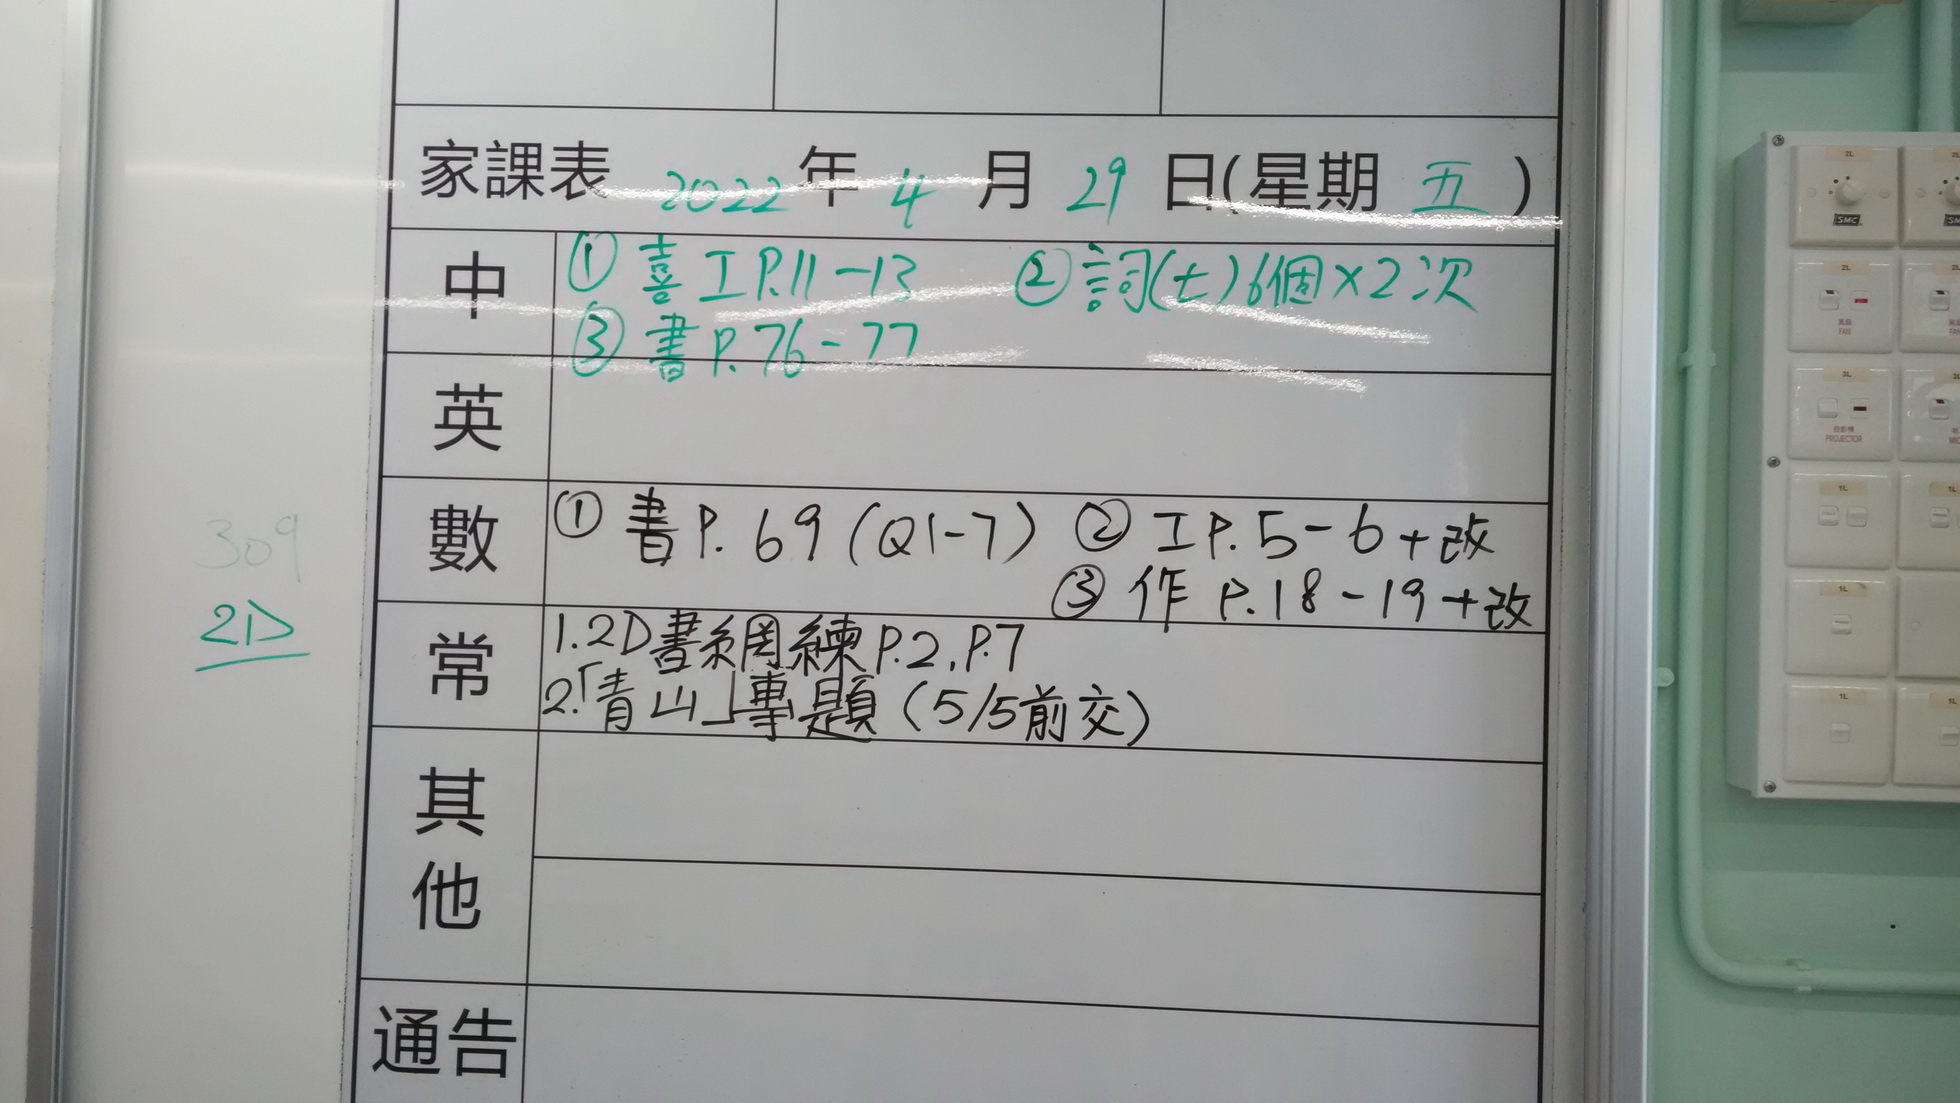 家課表 2022年4月29日(星期五)
中
① 喜工P.11-13 ② 詞(七)6個×2次
③ 書P.76-77
英
數
① 書P.69(Q1-7) ② 工P.5-6+改
③ 作P.18-19+改
常
1.2D書網練P.2,P.7
2.「青山」專題(5/5前交)
其他
通告
309
2D
2L
SMC
2L
風扇
FAN
3L
PROJECTOR
1L
1L
1L